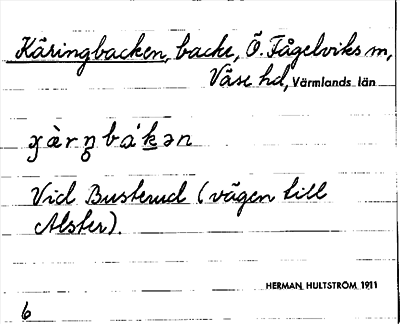 Käringbacken, backe, Ö. Fågelviks sn,
Väse hd, Värmlands län
Vid Busterud (vägen till
Alster).
HERMAN HULTSTRÖM 1911
6